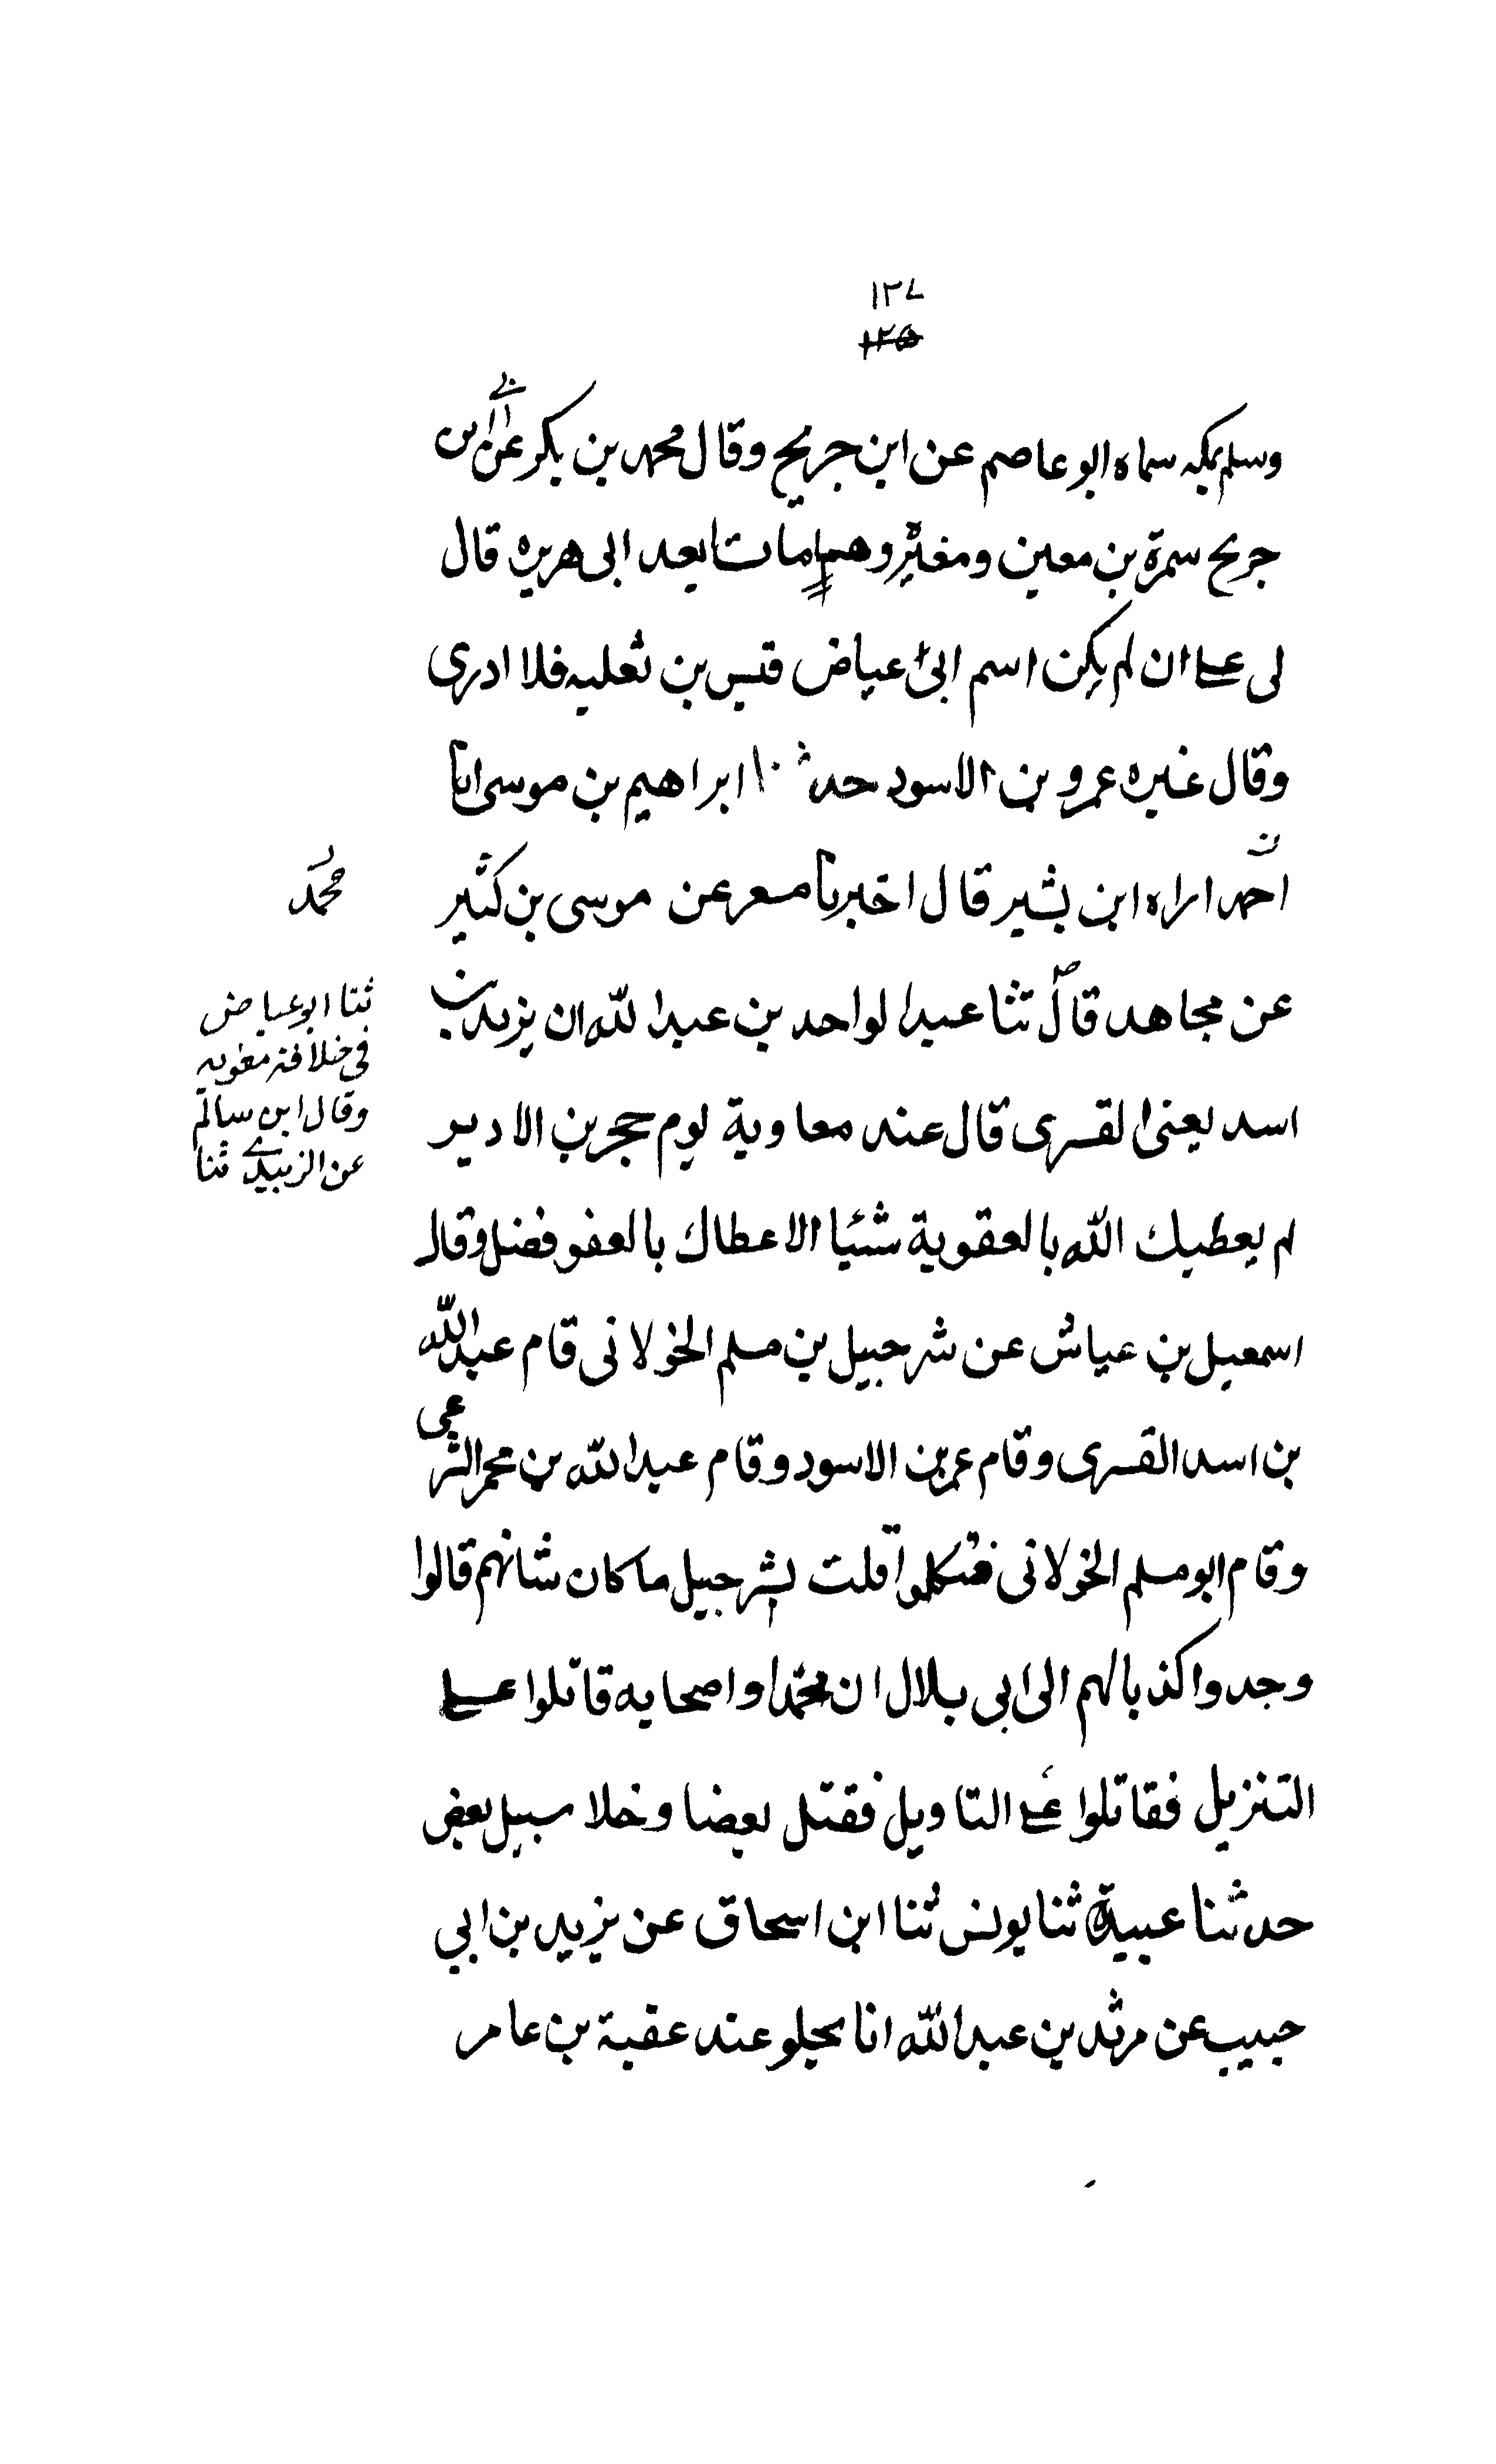 ١٣٧
١٢٥
وسلم بمكه سماه ابو عاصم عن ابن جريح وقال محمد بن بكر عن ابن
جريح سمرة بن معين ومغيرة وهم ماتا بعد ابى هريره قال
لى على ان لم يكن اسم ابى عياض قيس بن ثعلبه فلا ادرى
وقال غيره عمرو بن الاسود حدثنا ابراهيم بن موسى انا
احمد اراه ابن بشير قال اخبرنا مسعر عن موسى بن كثير
محمد
عن مجاهد قال ثنا عبد الواحد بن عبد الله ان يزيد بن
ثنا ابو عياض
فى خلافة معويه
وقال ابن سالم
عن الزبيدى ثنا
اسد يعنى القسرى قال عند معاوية يوم حجر بن الادبر
لم يعطيك الله بالعقوبة شئيا الا عطاك بالعفو فضل وقال
اسمعيل بن عياش عن شرحبيل بن مسلم الخولانى قام عبد الله
بن اسد القسرى وقام عمر بن الاسود وقام عبد الله بن محمر الشرعبى
وقام ابو مسلم الخولانى فتكلموا قلت لشرحبيل ما كان شانهم قالوا
وجدوا كذبالهم الى ابى بلال ان محمدا واصحابه قاتلوا على
التنزيل فقاتلوا على التاويل فقتل بعضا وخلا سبيل بعض
حدثنا عبيد ثنا يونس ثنا ابن اسحاق عن يزيد بن ابي
حبيب عن مرثد بن عبد الله انا بحلو عند عقبة بن عامر